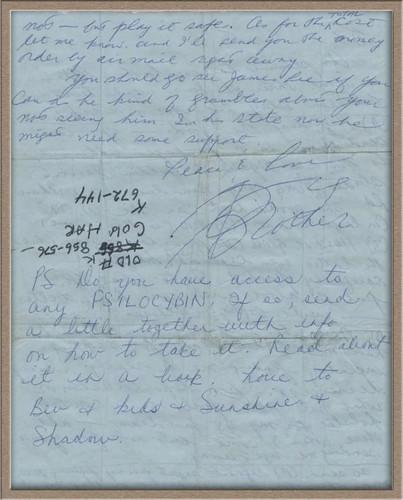 not — but play it safe. As for the total cost
let me know and I'll send you the money
order by air mail right away.
You should go see James Lee if you
can & he kind of grumbles about your
not seeing him. In his state now he
might need some support
Peace & Love
Brother
OLD # K
856-576-
GOV HAK
K
672-144
PS Do you have access to
any PSILOCYBIN. If so, send
a little together with info
on how to take it. Read about
it in a book. Love to
Bev & kids & Sunshine &
Shadow.